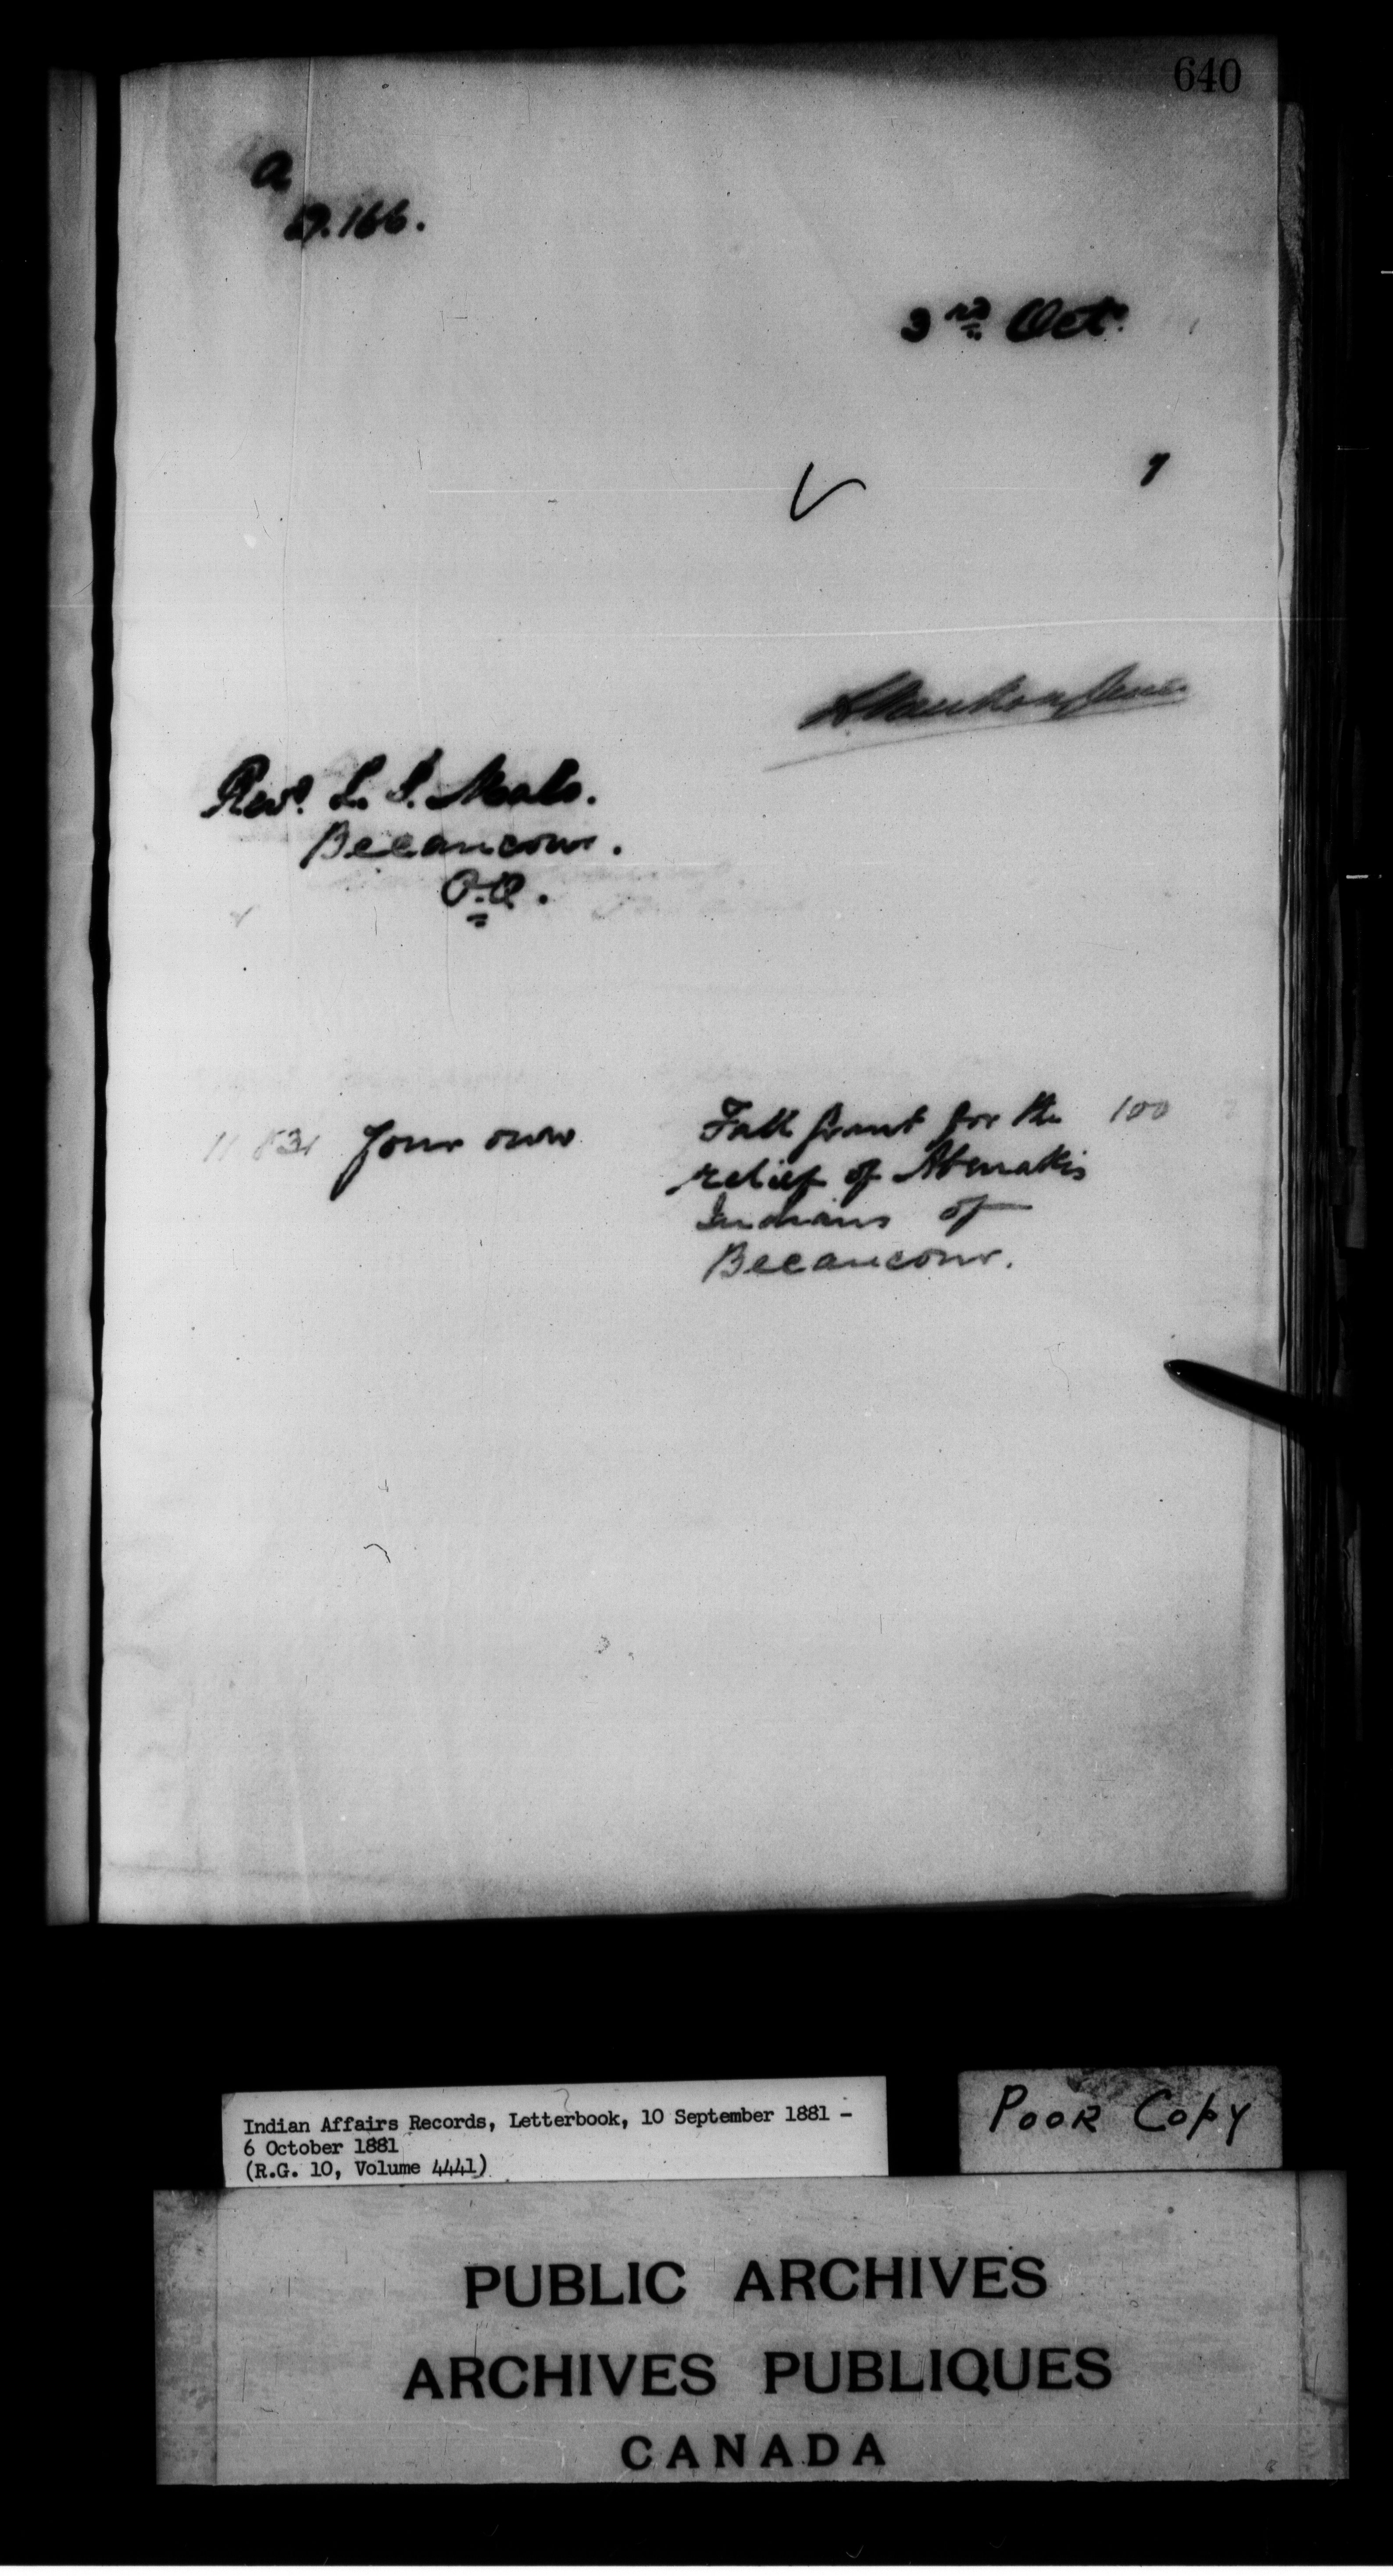 640
a
19.166.
3rd Oct.
Revd. L. I.
Becancour.
P.Q.
your own
Fall Grant for the 100
relief of Abenakis
Indians of
Becancour.
Indian Affairs Records, Letterbook, 10 September 1881 -
6 October 1881
(R.G. 10, Volume 4441)
POOR COPY
PUBLIC ARCHIVES
ARCHIVES PUBLIQUES
CANADA